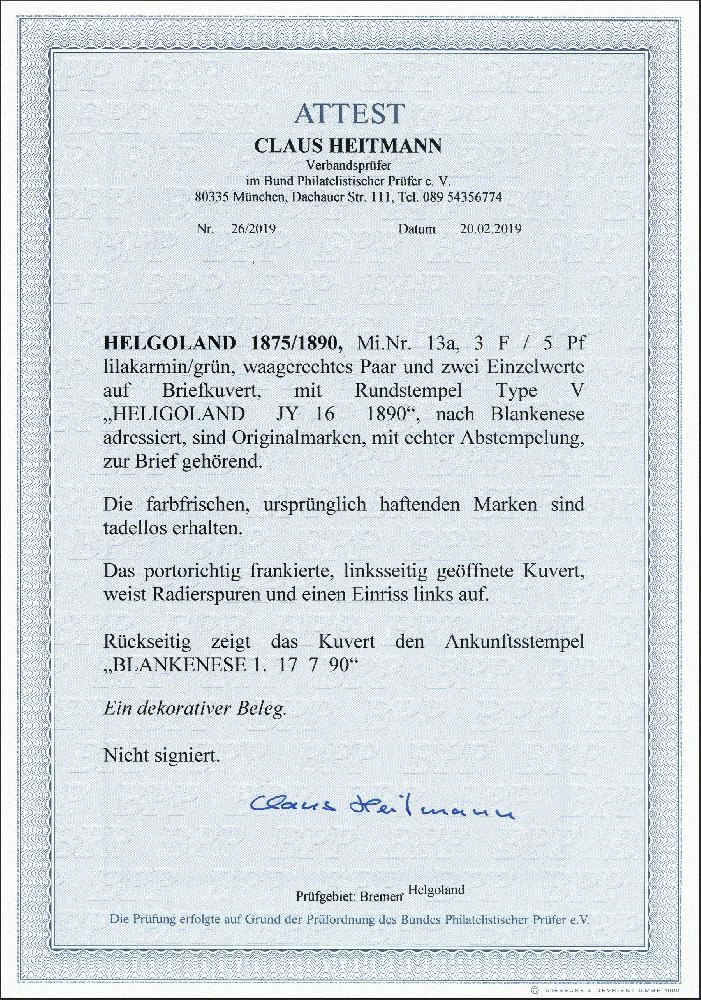 ATTEST
CLAUS HEITMANN
Verbandsprüfer
im Bund Philatelistischer Prüfer e. V.
80335 München, Dachauer Str. 111, Tel. 089 54356774
Nr. 26/2019 Datum 20.02.2019
HELGOLAND 1875/1890, Mi.Nr. 13a, 3 F / 5 Pf
lilakarmin/grün, waagerechtes Paar und zwei Einzelwerte
auf Briefkuvert, mit Rundstempel Type V
„HELIGOLAND JY 16 1890“, nach Blankenese
adressiert, sind Originalmarken, mit echter Abstempelung,
zur Brief gehörend.
Die farbfrischen, ursprünglich haftenden Marken sind
tadellos erhalten.
Das portorichtig frankierte, linksseitig geöffnete Kuvert,
weist Radierspuren und einen Einriss links auf.
Rückseitig zeigt das Kuvert den Ankunftsstempel
„BLANKENESE 1. 17 7 90“
Ein dekorativer Beleg.
Nicht signiert.
Claus Heitmann
Prüfgebiet: Bremen Helgoland
Die Prüfung erfolgte auf Grund der Prüfordnung des Bundes Philatelistischer Prüfer e.V.
© GIESECKE & DEVRIENT GMBH 1992